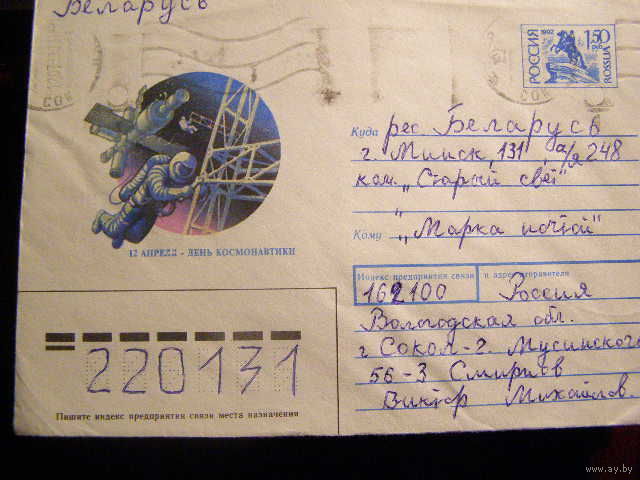 Беларусь
РОССИЯ 1992 1.50 РУБ ROSSIJA
Куда рес. Беларусь
г. Минск, 131, а/я 248
ком. „Старый свет"
„
Кому „Марка почтой"
12 АПРЕЛЯ - ДЕНЬ КОСМОНАВТИКИ
Индекс предприятия связи и адрес отправителя
162100 Россия
Вологодская обл.
г Сокол-2. Мусинского
56-3 Смирнов
Виктор Михайлов.
220131
Пишите индекс предприятия связи места назначения
www.ay.by